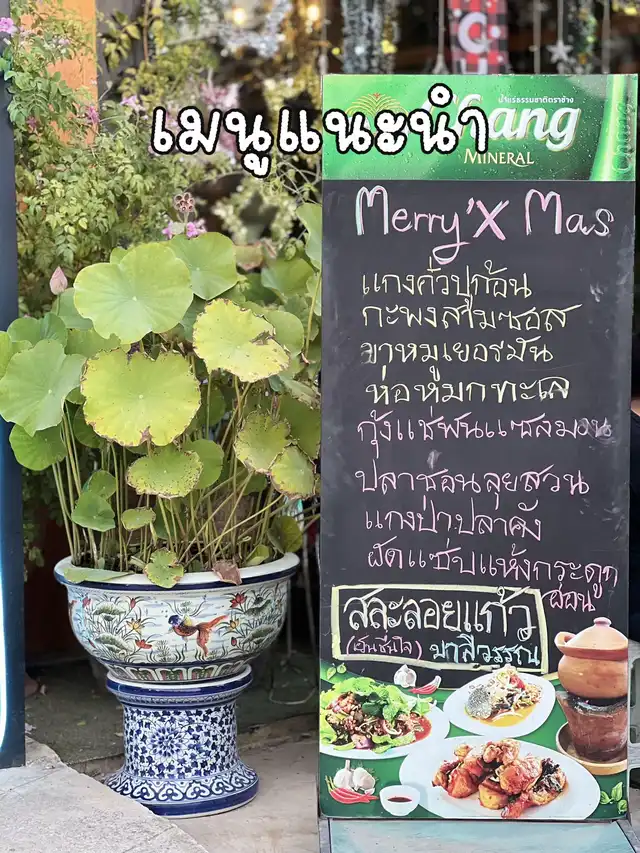 เมนูแนะนำ
น้ำแร่ธรรมชาติตราช้าง
Chang
MINERAL
Merry'X Mas
แกงคั่วปูก้อน
กะพงสามซอส
ขาหมูเยอรมัน
ห่อหมกทะเล
กุ้งแช่พันแซลมอน
ปลาช่อนลุยสวน
แกงป่าปลาคัง
ผัดแซ่บแห้งกระดูก
อ่อน
สละลอยแก้ว
(เย็นชื่นใจ) บาลีวรรณ